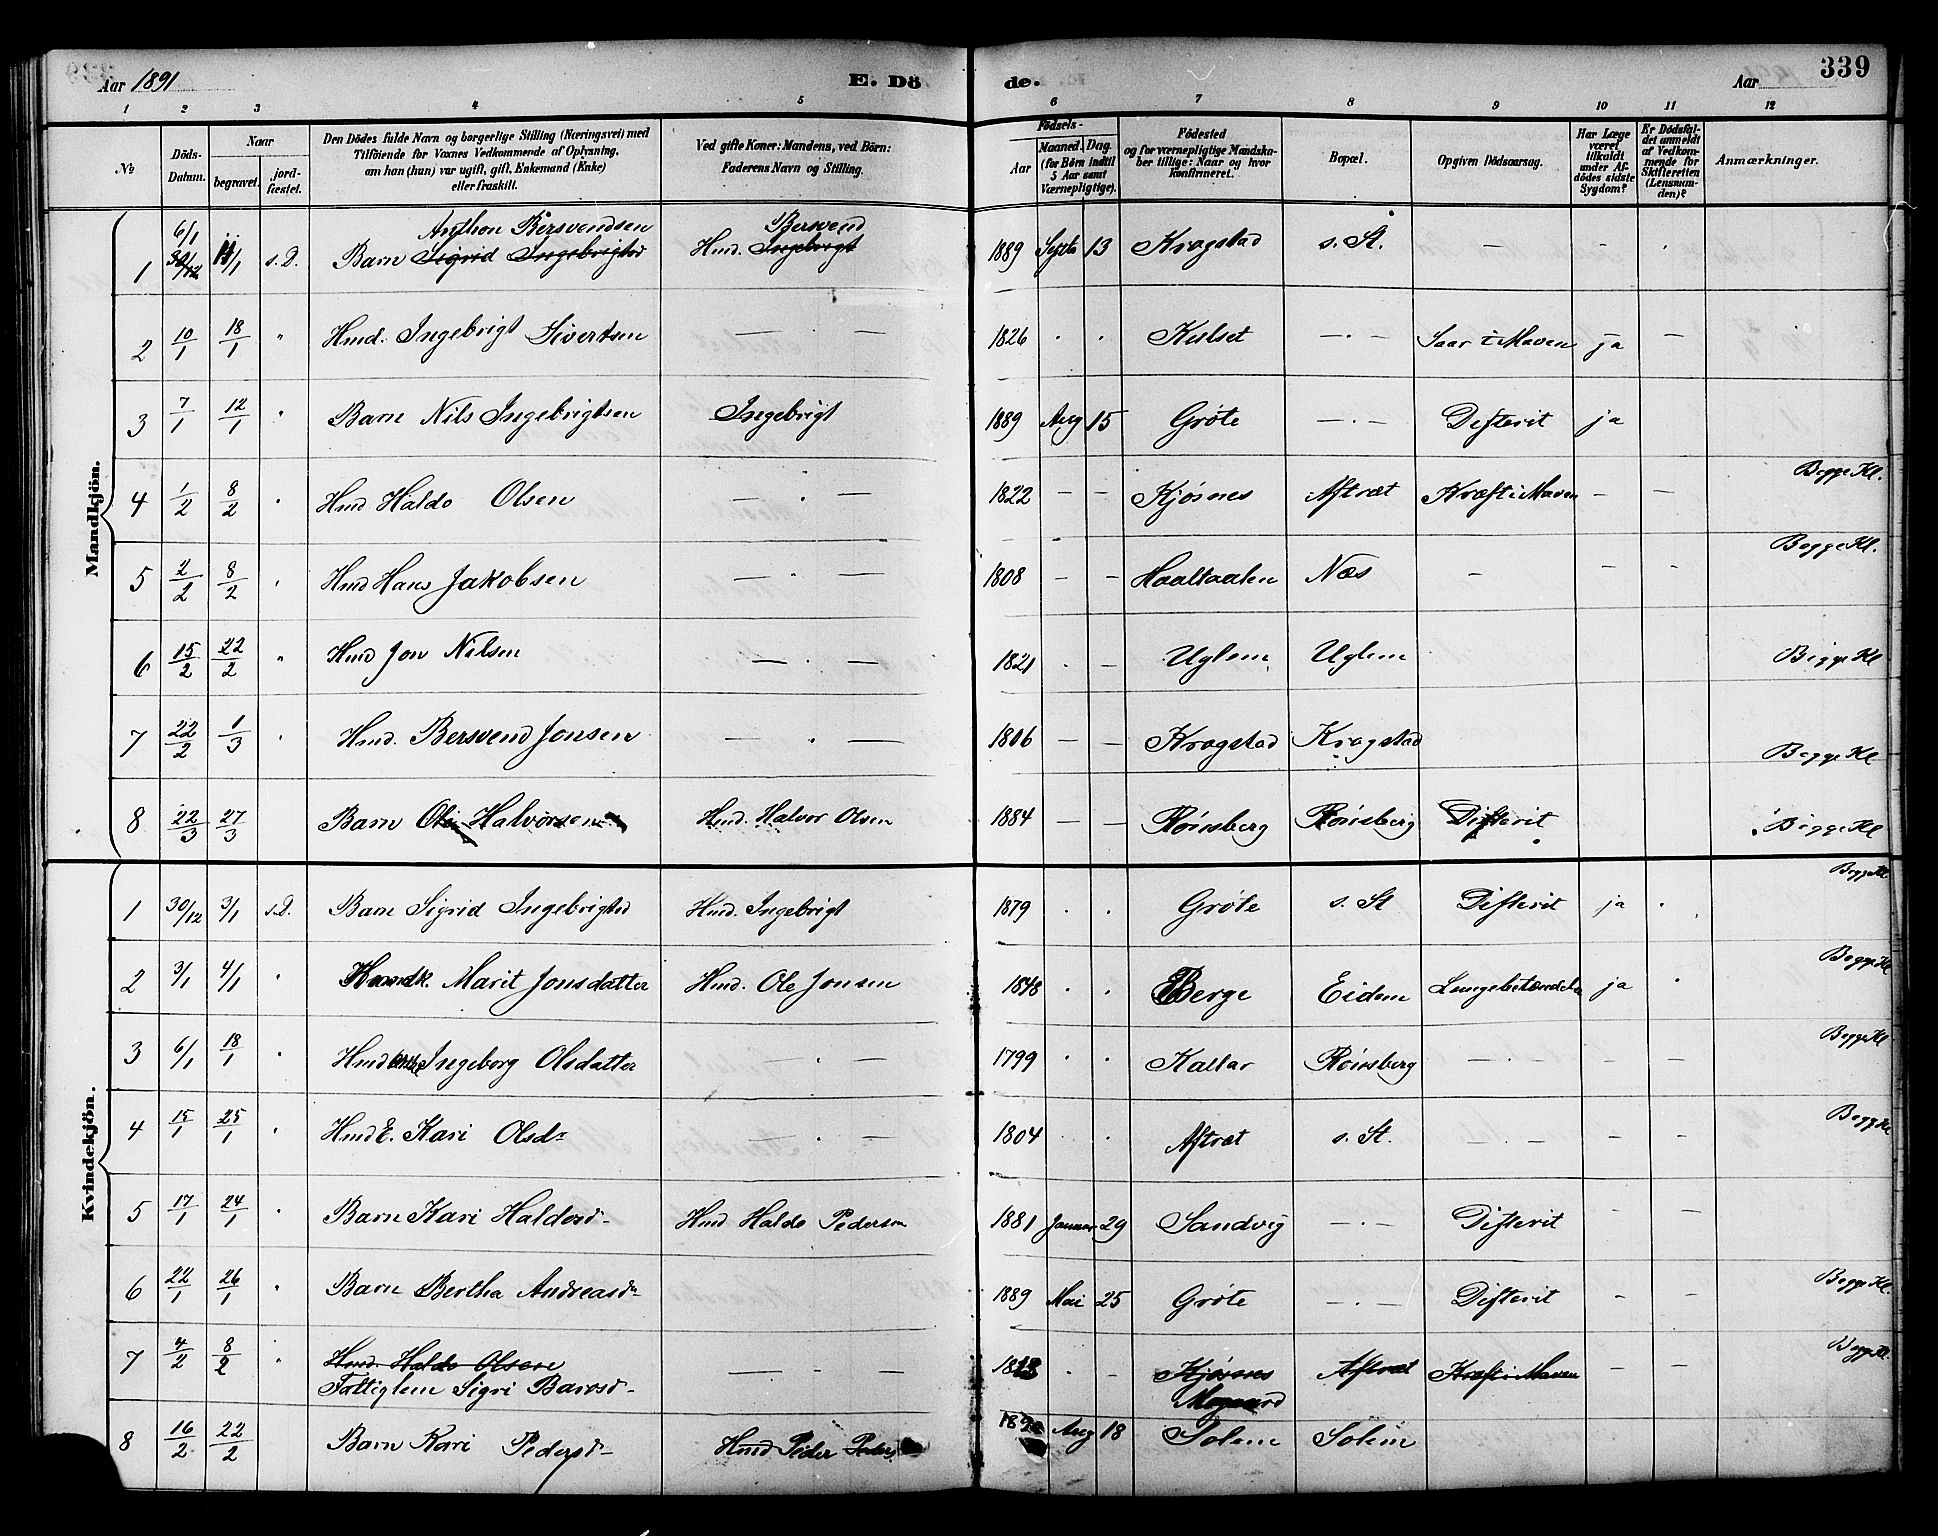 Aar 1891 E. Dö de. Aar 339
1 2 3 4 5 6 7 8 9 10 11 12
№ Döds-Datum. Naar begravet. jordfæstet. Den Dödes fulde Navn og borgerlige Stilling (Næringsvei) med Tilföiende for Voxnes Vedkommende af Oplysning, om han (hun) var ugift, gift, Enkemand (Enke) eller fraskilt. Ved gifte Koner: Mandens, ved Börn: Faderens Navn og Stilling. Födsels- Aar Maaned. Dag (for Börn indtil 5 Aar samt Værnepligtige). Födested og for værnepligtige Mandskaber tillige: Naar og hvor konfirmeret. Bopæl. Opgiven Dödsaarsag. Har Læge været tilkaldt under Afdödes sidste Sygdom? Er Dödsfaldet anmeldt af Vedkommende for Skifteretten (Lensmanden)? Anmærkninger.
Mandkjön.
6/1 Anthon Bersvendsen Bersvend
1 30/12 11/1 s. D. Barn Sigrid Ingebrigtsd Hmd. Ingebrigt 1889 Septb 13 Kragstad s. St. — — .
2 10/1 18/1 " Hmd. Ingebrigt Sivertsen — . — 1826 . . Kulset — . — Saar i Maven ja —
3 7/1 12/1 " Barn Nils Ingebrigtsen Ingebrigt 1889 Aug 15 Gröte — . — Difterit ja
4 1/2 8/2 " Hmd Haldo Olsen — . — 1822 — — Kjösnes Aftræt Kræft i Maven — — Begge Kl.
5 2/2 8/2 " Hmd Hans Jakobsen — . — 1808 — — Haaltaalen Næs — — — Begge Kl.
6 15/2 22/2 " Hmd Jon Nilsen — . — 1821 . — Uglem Uglem Begge Kl
7 22/2 1/3 " Hmd. Bersvend Jonsen — . — 1806 — — Kragstad Kragstad Begge Kl
8 22/3 27/3 Barn Ole Halvorsen Hmd. Halvor Olsen 1884 — — Röinsberg Röinsberg Difterit Begge Kl
Kvindekjön.
1 30/12 3/1 s. D. Barn Sigrid Ingebrigtsd Hmd. Ingebrigt 1879 . . Gröte s. St Difterit ja . Begge Kl
2 3/1 4/1 " Hmdk. Marit Jonsdatter Hmd. Ole Jonsen 1848 . . Berge Eidem Lungebetændelse ja . Begge Kl
3 6/1 18/1 " Hmd Enke Ingeborg Olsdatter — . — 1799 . . Kallar Röinsberg — . — — — Begge Kl
4 15/1 25/1 " Hmd E. Kari Olsdr — . — 1804 . . Aftræt s. St. — . — — — Begge Kl
5 17/1 24/1 " Barn Kari Haldosd- Hmd Haldo Pedersen 1881 Januar 29 Sandvig — . — Difterit — —
6 22/1 26/1 " Barn Bertha Andreasdr 1889 Mai 25 Gröte — . — Difterit — — Begge Kl.
7 4/2 8/2 " Hmd. Haldo Olsen — — . — Kjösnes Aftræt Kræft i Maven — — Begge Kl.
Fattiglem Sigri Barosd- Mogaard
8 16/2 22/2 Barn Kari Pedersd- Hmd Peder Peders Aug 18 Solem Solem